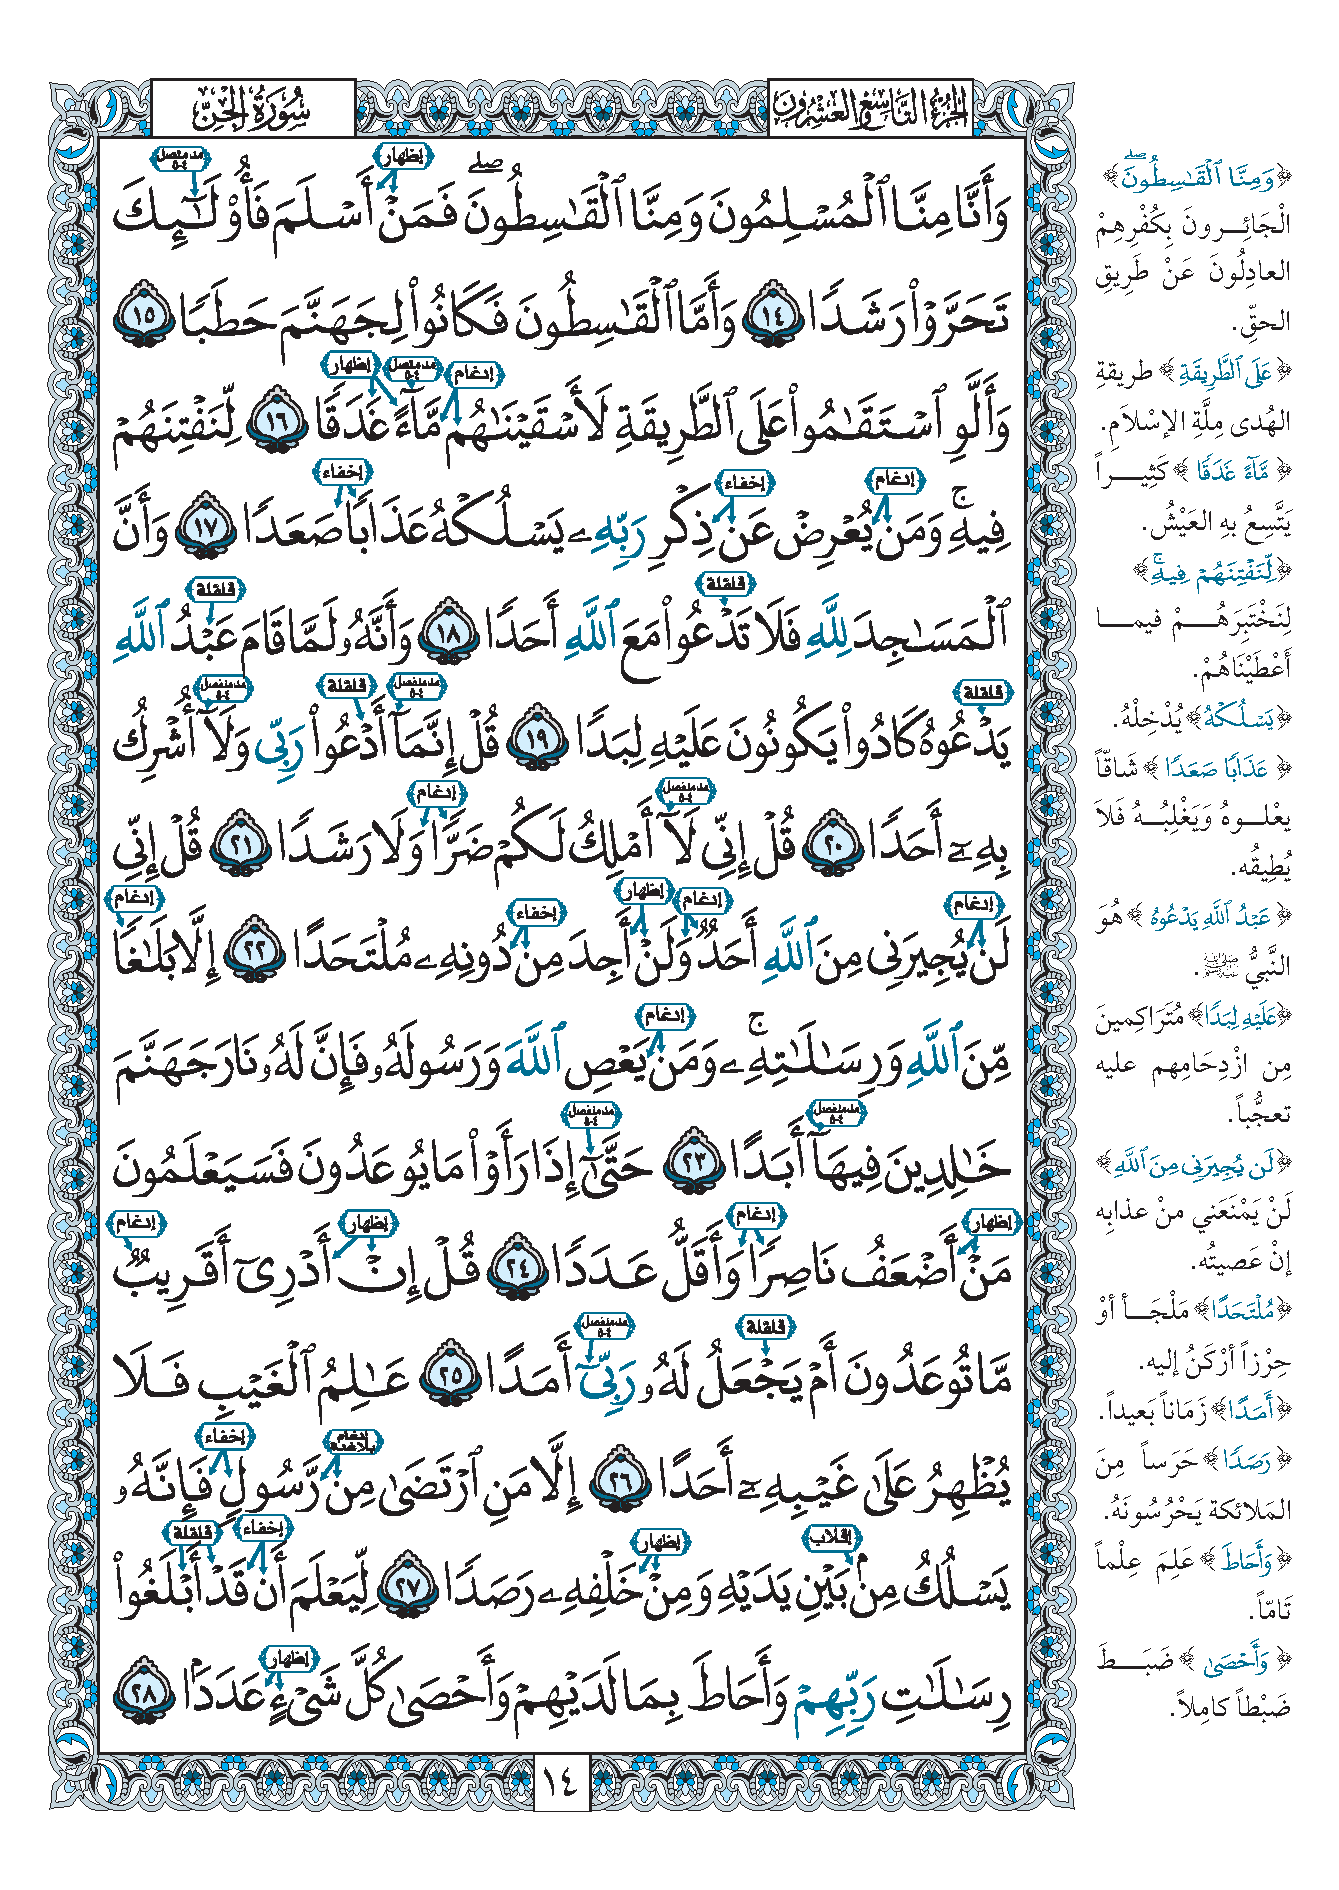 الجزء التاسع والعشرون
سورة الجن
وَأَنَّا مِنَّا ٱلْمُسْلِمُونَ وَمِنَّا ٱلْقَٰسِطُونَ ۖ فَمَنْ أَسْلَمَ فَأُو۟لَٰٓئِكَ
تَحَرَّوْا۟ رَشَدًا ١٤ وَأَمَّا ٱلْقَٰسِطُونَ فَكَانُوا۟ لِجَهَنَّمَ حَطَبًا ١٥
وَأَلَّوِ ٱسْتَقَٰمُوا۟ عَلَى ٱلطَّرِيقَةِ لَأَسْقَيْنَٰهُم مَّآءً غَدَقًا ١٦ لِّنَفْتِنَهُمْ
فِيهِ ۚ وَمَن يُعْرِضْ عَن ذِكْرِ رَبِّهِۦ يَسْلُكْهُ عَذَابًا صَعَدًا ١٧ وَأَنَّ
ٱلْمَسَٰجِدَ لِلَّهِ فَلَا تَدْعُوا۟ مَعَ ٱللَّهِ أَحَدًا ١٨ وَأَنَّهُۥ لَمَّا قَامَ عَبْدُ ٱللَّهِ
يَدْعُوهُ كَادُوا۟ يَكُونُونَ عَلَيْهِ لِبَدًا ١٩ قُلْ إِنَّمَآ أَدْعُوا۟ رَبِّى وَلَآ أُشْرِكُ
بِهِۦٓ أَحَدًا ٢٠ قُلْ إِنِّى لَآ أَمْلِكُ لَكُمْ ضَرًّا وَلَا رَشَدًا ٢١ قُلْ إِنِّى
لَن يُجِيرَنِى مِنَ ٱللَّهِ أَحَدٌ وَلَنْ أَجِدَ مِن دُونِهِۦ مُلْتَحَدًا ٢٢ إِلَّا بَلَٰغًا
مِّنَ ٱللَّهِ وَرِسَٰلَٰتِهِۦ ۚ وَمَن يَعْصِ ٱللَّهَ وَرَسُولَهُۥ فَإِنَّ لَهُۥ نَارَ جَهَنَّمَ
خَٰلِدِينَ فِيهَآ أَبَدًا ٢٣ حَتَّىٰٓ إِذَا رَأَوْا۟ مَا يُوعَدُونَ فَسَيَعْلَمُونَ
مَنْ أَضْعَفُ نَاصِرًا وَأَقَلُّ عَدَدًا ٢٤ قُلْ إِنْ أَدْرِىٓ أَقَرِيبٌ
مَّا تُوعَدُونَ أَمْ يَجْعَلُ لَهُۥ رَبِّىٓ أَمَدًا ٢٥ عَٰلِمُ ٱلْغَيْبِ فَلَا
يُظْهِرُ عَلَىٰ غَيْبِهِۦٓ أَحَدًا ٢٦ إِلَّا مَنِ ٱرْتَضَىٰ مِن رَّسُولٍ فَإِنَّهُۥ
يَسْلُكُ مِنۢ بَيْنِ يَدَيْهِ وَمِنْ خَلْفِهِۦ رَصَدًا ٢٧ لِّيَعْلَمَ أَن قَدْ أَبْلَغُوا۟
رِسَٰلَٰتِ رَبِّهِمْ وَأَحَاطَ بِمَا لَدَيْهِمْ وَأَحْصَىٰ كُلَّ شَىْءٍ عَدَدًۢا ٢٨
١٤
إظهار مد متصل ٤-٥
إدغام مد متصل ٤-٥ إظهار
إدغام إخفاء إخفاء
قلقلة قلقلة
قلقلة مد منفصل ٤-٥ قلقلة مد منفصل ٤-٥
مد منفصل ٤-٥ إدغام
إدغام إدغام إظهار إخفاء إدغام
إدغام
مد منفصل ٤-٥ مد منفصل ٤-٥
إظهار إدغام إظهار إدغام
قلقلة مد منفصل ٤-٥
إدغام بلاغنة إخفاء
إقلاب إظهار إخفاء قلقلة
إظهار
﴿وَمِنَّا ٱلْقَٰسِطُونَ ۖ﴾
الْجَائِرونَ بِكُفْرِهِمْ
العادِلُونَ عَنْ طَرِيقِ
الحقِّ.
﴿عَلَى ٱلطَّرِيقَةِ﴾ طريقةِ
الهُدى مِلَّةِ الإسْلَامِ.
﴿مَّآءً غَدَقًا﴾ كَثِيراً
يَتَّسِعُ بِهِ العَيْشُ.
﴿لِّنَفْتِنَهُمْ فِيهِ ۚ﴾
لِنَخْتَبِرَهُمْ فيما
أَعْطَيْنَاهُمْ.
﴿يَسْلُكْهُ﴾ يُدْخِلْهُ.
﴿عَذَابًا صَعَدًا﴾ شَاقّاً
يعْلوهُ وَيَغْلِبُهُ فَلَا
يُطِيقُه.
﴿عَبْدُ ٱللَّهِ يَدْعُوهُ﴾ هُوَ
النَّبيُّ ﷺ.
﴿عَلَيْهِ لِبَدًا﴾ مُتَرَاكِمِينَ
مِن ازْدِحَامِهم عليه
تعجُّباً.
﴿لَن يُجِيرَنِى مِنَ ٱللَّهِ﴾
لَنْ يَمْنَعَني منْ عذابِهِ
إنْ عَصيتُه.
﴿مُلْتَحَدًا﴾ مَلْجَأً أوْ
حِرْزاً أرْكَنُ إليه.
﴿أَمَدًا﴾ زَمَاناً بَعيداً.
﴿رَصَدًا﴾ حَرَساً مِنَ
المَلائكة يَحْرُسُونَهُ.
﴿وَأَحَاطَ﴾ عَلِمَ عِلْماً
تَامّاً.
﴿وَأَحْصَىٰ﴾ ضَبَطَ
ضَبْطاً كامِلاً.